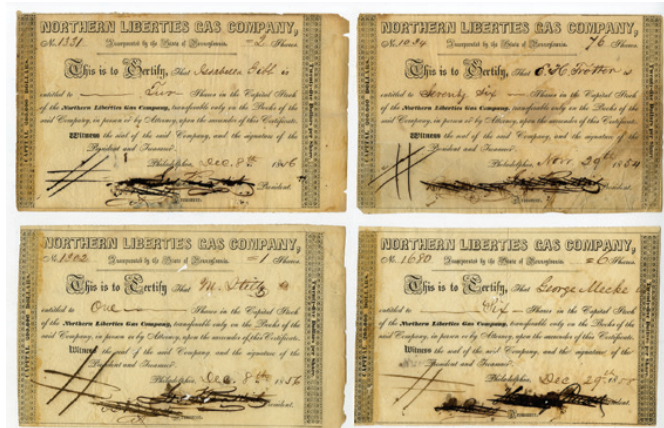 NORTHERN LIBERTIES GAS COMPANY,
No. 1331 Incorporated by the State of Pennsylvania. 2 Shares.
This is to Certify, That Isabella Gibb is
entitled to Two Shares in the Capital Stock
of the Northern Liberties Gas Company, transferable only on the Books of the
said Company, in person or by Attorney, upon the surrender of this Certificate.
Witness the seal of the said Company, and the signature of the
President and Treasurer.
Philadelphia, Dec. 8th 1856
President.
Treasurer.
NORTHERN LIBERTIES GAS COMPANY,
No. 1034 Incorporated by the State of Pennsylvania. 76 Shares.
This is to Certify, That Trotter is
entitled to Seventy Six Shares in the Capital Stock
of the Northern Liberties Gas Company, transferable only on the Books of the
said Company, in person or by Attorney, upon the surrender of this Certificate.
Witness the seal of the said Company, and the signature of the
President and Treasurer.
Philadelphia, Novr. 29th 1854
President.
Treasurer.
NORTHERN LIBERTIES GAS COMPANY,
No. 1302 Incorporated by the State of Pennsylvania. 1 Shares.
This is to Certify, That M.
entitled to One Shares in the Capital Stock
of the Northern Liberties Gas Company, transferable only on the Books of the
said Company, in person or by Attorney, upon the surrender of this Certificate.
Witness the seal of the said Company, and the signature of the
President and Treasurer.
Philadelphia, Dec. 8th 1856
President.
NORTHERN LIBERTIES GAS COMPANY,
No. 1680 Incorporated by the State of Pennsylvania. 6 Shares.
This is to Certify, That George Mecke is
entitled to Six Shares in the Capital Stock
of the Northern Liberties Gas Company, transferable only on the Books of the
said Company, in person or by Attorney, upon the surrender of this Certificate.
Witness the seal of the said Company, and the signature of the
President and Treasurer.
Philadelphia, Dec. 29th
President.
Treasurer.